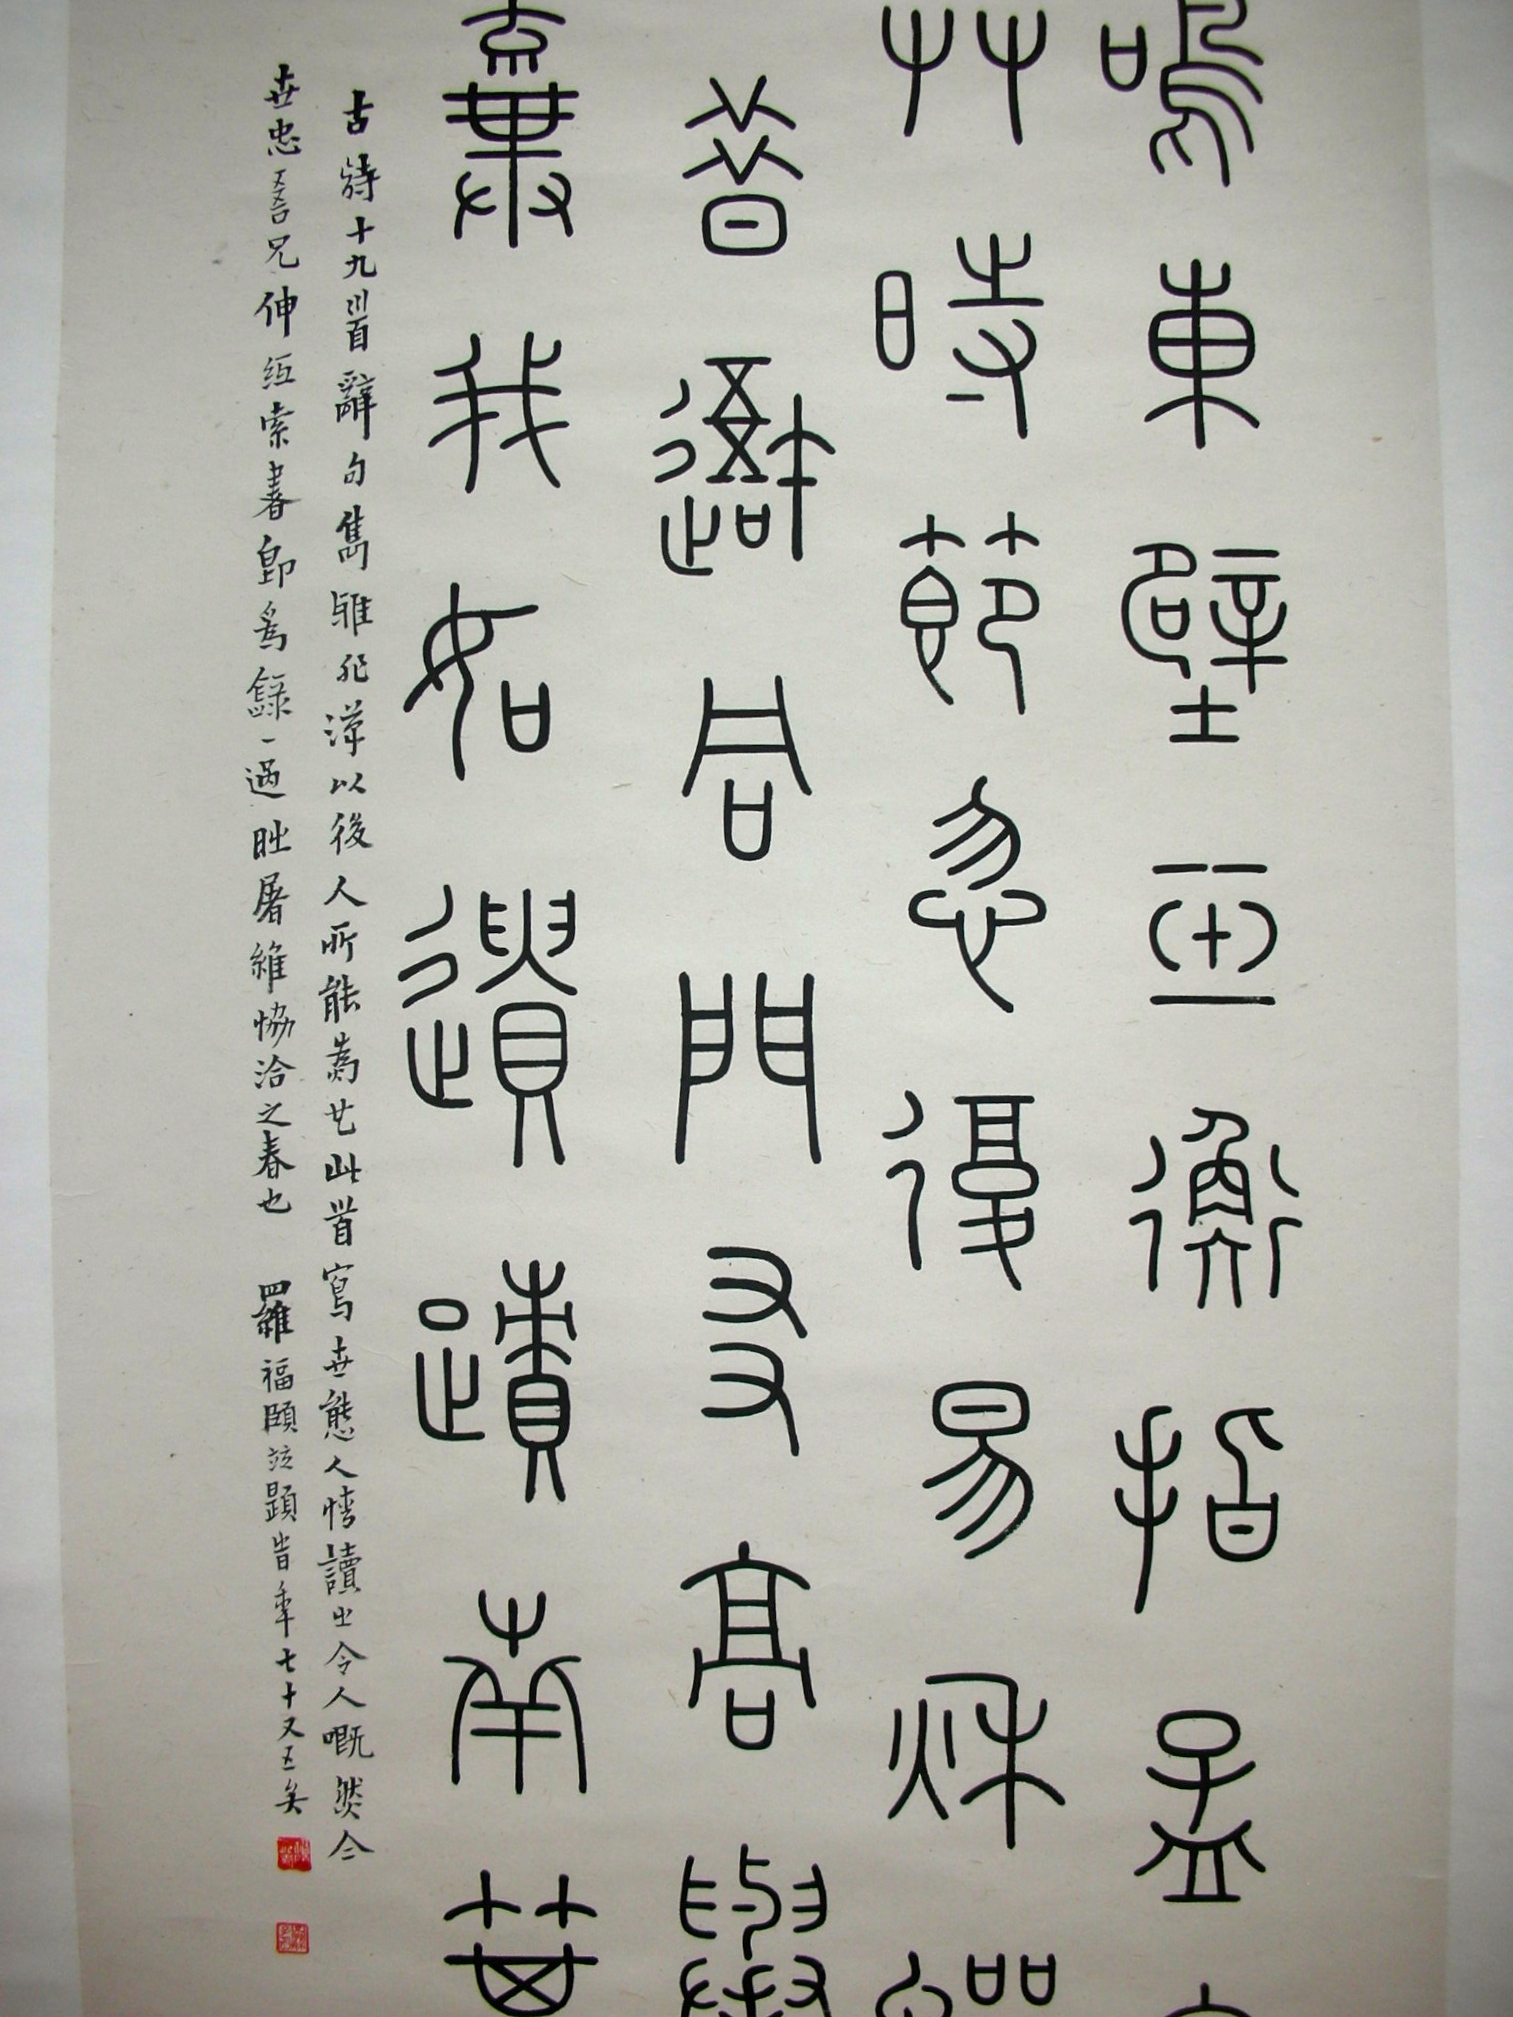 鳴東壁王衡指孟
艸時節忽復易秋蟬
昔吾同門友高舉
棄我如遺蹟南萁
古詩十九首辭句雋雅非漢以後人所能為也此首寫世態人情讀之令人嘅然今
世忠吾兄伸紙索書即為錄一過時屠維協洽之春也 羅福頤並題時年七十又五矣